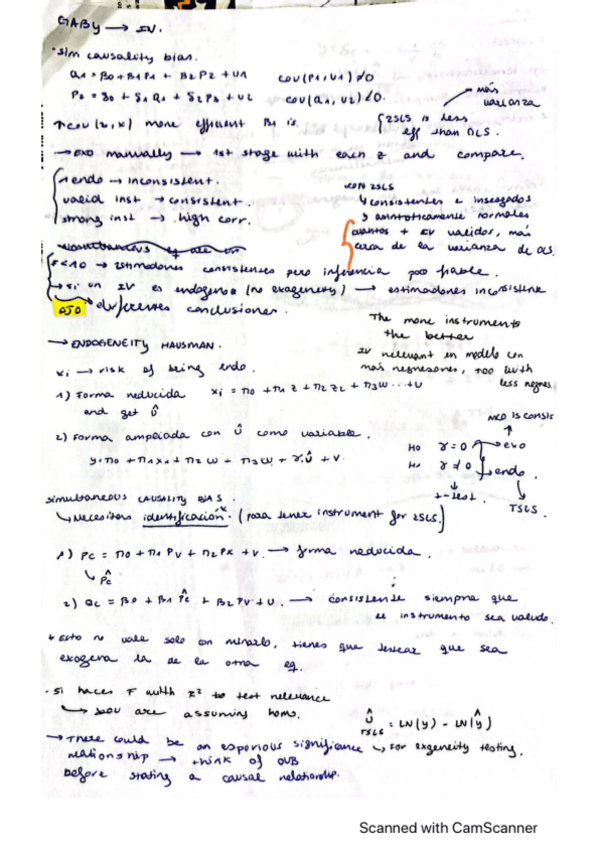 GABY → IV.
· sim causality bias.
Q1 = β0 + β1P1 + β2P2 + u1   cov(P1,u1)≠0
P2 = δ0 + δ1Q1 + δ2P3 + u2   cov(Q1,u2)≠0.
→ más varianza
↑cov(z,x) more efficient β1 is.
2SLS is less eff than OLS.
→ exo manually → 1st stage with each z and compare.
1 endo → inconsistent.
valid inst → consistent.
strong inst → high corr.
CON 2SLS
consistentes e insesgados
y asintoticamente normales
cuantos + IV validos, más
cerca de la varianza de OLS.
F<10 → estimadores consistentes pero inferencia poco fiable.
→ si un IV es endógeno (no exogeneity) → estimadores inconsistente
OJO diferentes conclusiones.
The more instruments
the better
IV relevant en modelo con
más regresores, too with
less regres.
→ ENDOGENEITY HAUSMAN.
xi → risk of being endo.
1) Forma reducida   xi = π0 + π1 z + π2 z2 + π3w ... + υ
and get û
2) Forma ampliada con û como variable.
y = π0 + π1x1 + π2w + π3w + γ.û + v.
MCO is consis
H0   γ = 0 → exo
H1   γ ≠ 0 → endo.
t-test.
TSLS
simultaneous CAUSALITY BIAS.
↳ Necesitas identificación. (para tener instrument for 2SLS.)
1) Pc = π0 + π1 Pv + π2Px + v. → forma reducida.
↳ P̂c
2) Qc = β0 + β1 P̂c + β2 Pv + u. → consistente siempre que
el instrumento sea valido.
+ esto no vale solo con mirarlo, tienes que testear que sea
exogena la de la otra eq.
· si haces F with R² to test relevance
↳ you are assuming homo.
û TSLS = LN(y) - LN(ŷ)
↳ for exgeneity testing.
→ There could be an esporious significance
relationship → think of OVB
before stating a causal relationship.
Scanned with CamScanner